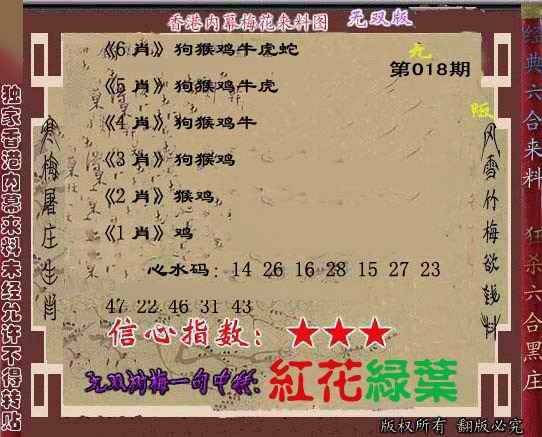 香港内幕梅花来料图 无双版
《6 肖》狗猴鸡牛虎蛇
《5 肖》狗猴鸡牛虎
《4 肖》狗猴鸡牛
《3 肖》狗猴鸡
《2 肖》猴鸡
《1 肖》鸡
心水码：14 26 16 28 15 27 23
47 22 46 31 43
信心指数：★★★
红花綠葉
第018期
独家香港内幕来料未经允许不得转贴
寒梅屠庄生肖
风雪竹梅欲钱料
经典六合来料 狂杀六合黑庄
版权所有 翻版必究